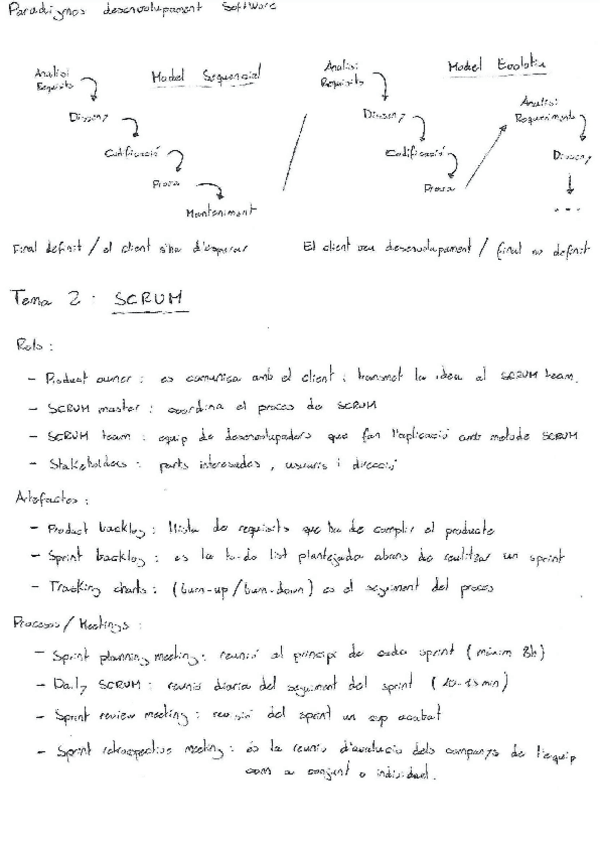 Paradigmes desenvolupament Software
Model Seqüencial
Anàlisi
Requisits
Disseny
Codificació
Prova
Manteniment
Final definit / el client s'ha d'esperar
Model Evolutiu
Anàlisi
Requisits
Disseny
Codificació
Prova
Anàlisi
Requeriments
Disseny
...
El client veu desenvolupament / final no definit
Tema 2. SCRUM
Rols:
- Product owner: es comunica amb el client i transmet la idea al SCRUM team.
- SCRUM master: coordina el procés de SCRUM
- SCRUM team: equip de desenvolupadors que fan l'aplicació amb metode SCRUM
- Stakeholders: parts interesades, usuaris i direcció
Artefactes:
- Product backlog: llista de requisits que ha de complir el producte
- Sprint backlog: es la to-do list plantejada abans de realitzar un sprint
- Tracking charts: (burn-up/burn-down) es el seguiment del procés
Processos/Meetings:
- Sprint planning meeting: reunió al principi de cada sprint (màxim 8h)
- Daily SCRUM: reunió diaria del seguiment del sprint (10-15 min)
- Sprint review meeting: revisió del sprint un cop acabat
- Sprint retrospective meeting: és la reunió d'avaluació dels companys de l'equip
com a conjunt o individual.